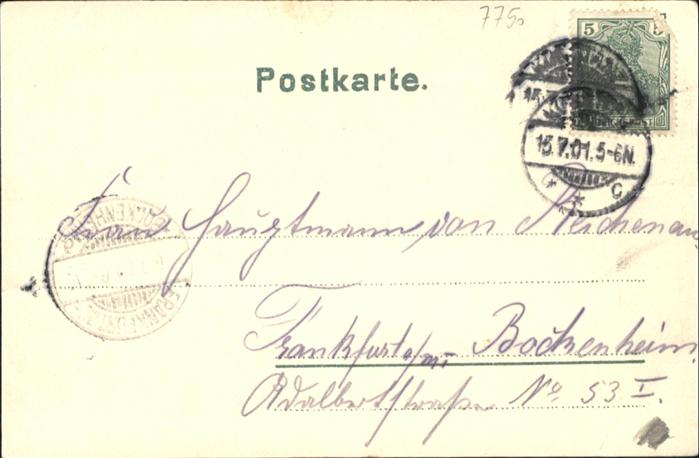 775
5 5
Postkarte.
15.7.01.5-6N.
* * c
Frau Hauptmann von Reichenau
FRANKFURT
Frankfurt a/m. Bockenheim.
Adalbertstraße No 53 I.